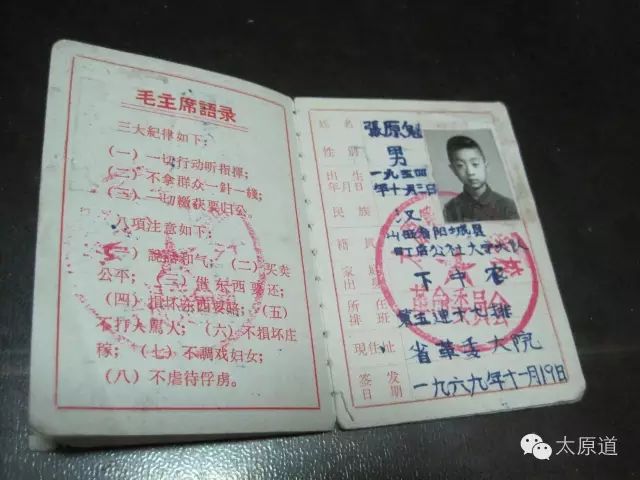 毛主席語录
三大紀律如下：
(一) 一切行动听指揮；
(二) 不拿群众一針一綫；
(三) 一切繳获要归公。
八項注意如下：
(一) 說話和气；(二) 买卖
公平；(三) 借东西要还；
(四) 損坏东西要賠；(五)
不打人駡人；(六) 不損坏庄
稼；(七) 不調戏妇女；
(八) 不虐待俘虏。
姓名 張原
性別 男
出生年月日 一九五四年十月三日
民族 汉
籍貫 山西省阳城县町店公社大宁大队
家庭 下中农
所在排班 第五連十九排
現住址 省革委大院
签发日期 一九六九年十一月19日
革命委員会
太原道